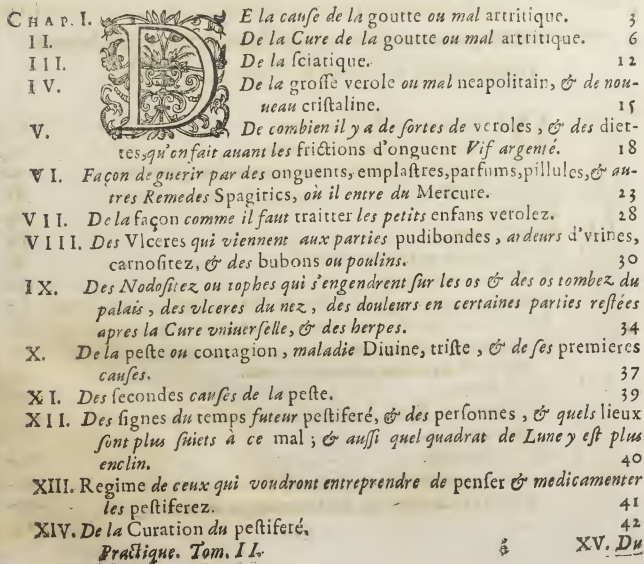 CHAP. I. DE la cauſe de la goutte ou mal artritique. 3
II. De la Cure de la goutte ou mal artritique. 6
III. De la ſciatique. 12
IV. De la groſſe verole ou mal neapolitain, & de nou-
ueau criſtaline. 15
V. De combien il y a de ſortes de veroles, & des diet-
tes, qu'en fait auant les frictions d'onguent Vif argenté. 18
VI. Façon de guerir par des onguents, emplaſtres, parfums, pillules, & au-
tres Remedes Spagirics, où il entre du Mercure. 23
VII. De la façon comme il faut traitter les petits enfans verolez. 28
VIII. Des Vlceres qui viennent aux parties pudibondes, ardeurs d'vrines,
carnoſitez, & des bubons ou poulins. 30
IX. Des Nodoſitez ou tophes qui s'engendrent ſur les os & des os tombez du
palais, des vlceres du nez, des douleurs en certaines parties reſtées
apres la Cure vniuerſelle, & des herpes. 34
X. De la peſte ou contagion, maladie Diuine, triſte, & de ſes premieres
cauſes. 37
XI. Des ſecondes cauſes de la peſte. 39
XII. Des ſignes du temps futeur peſtiferé, & des perſonnes, & quels lieux
ſont plus ſuiets à ce mal; & auſſi quel quadrat de Lune y eſt plus
enclin. 40
XIII. Regime de ceux qui voudront entreprendre de penſer & medicamenter
les peſtiferez. 41
XIV. De la Curation du peſtiferé. 42
Practique. Tom. II. á XV. Du